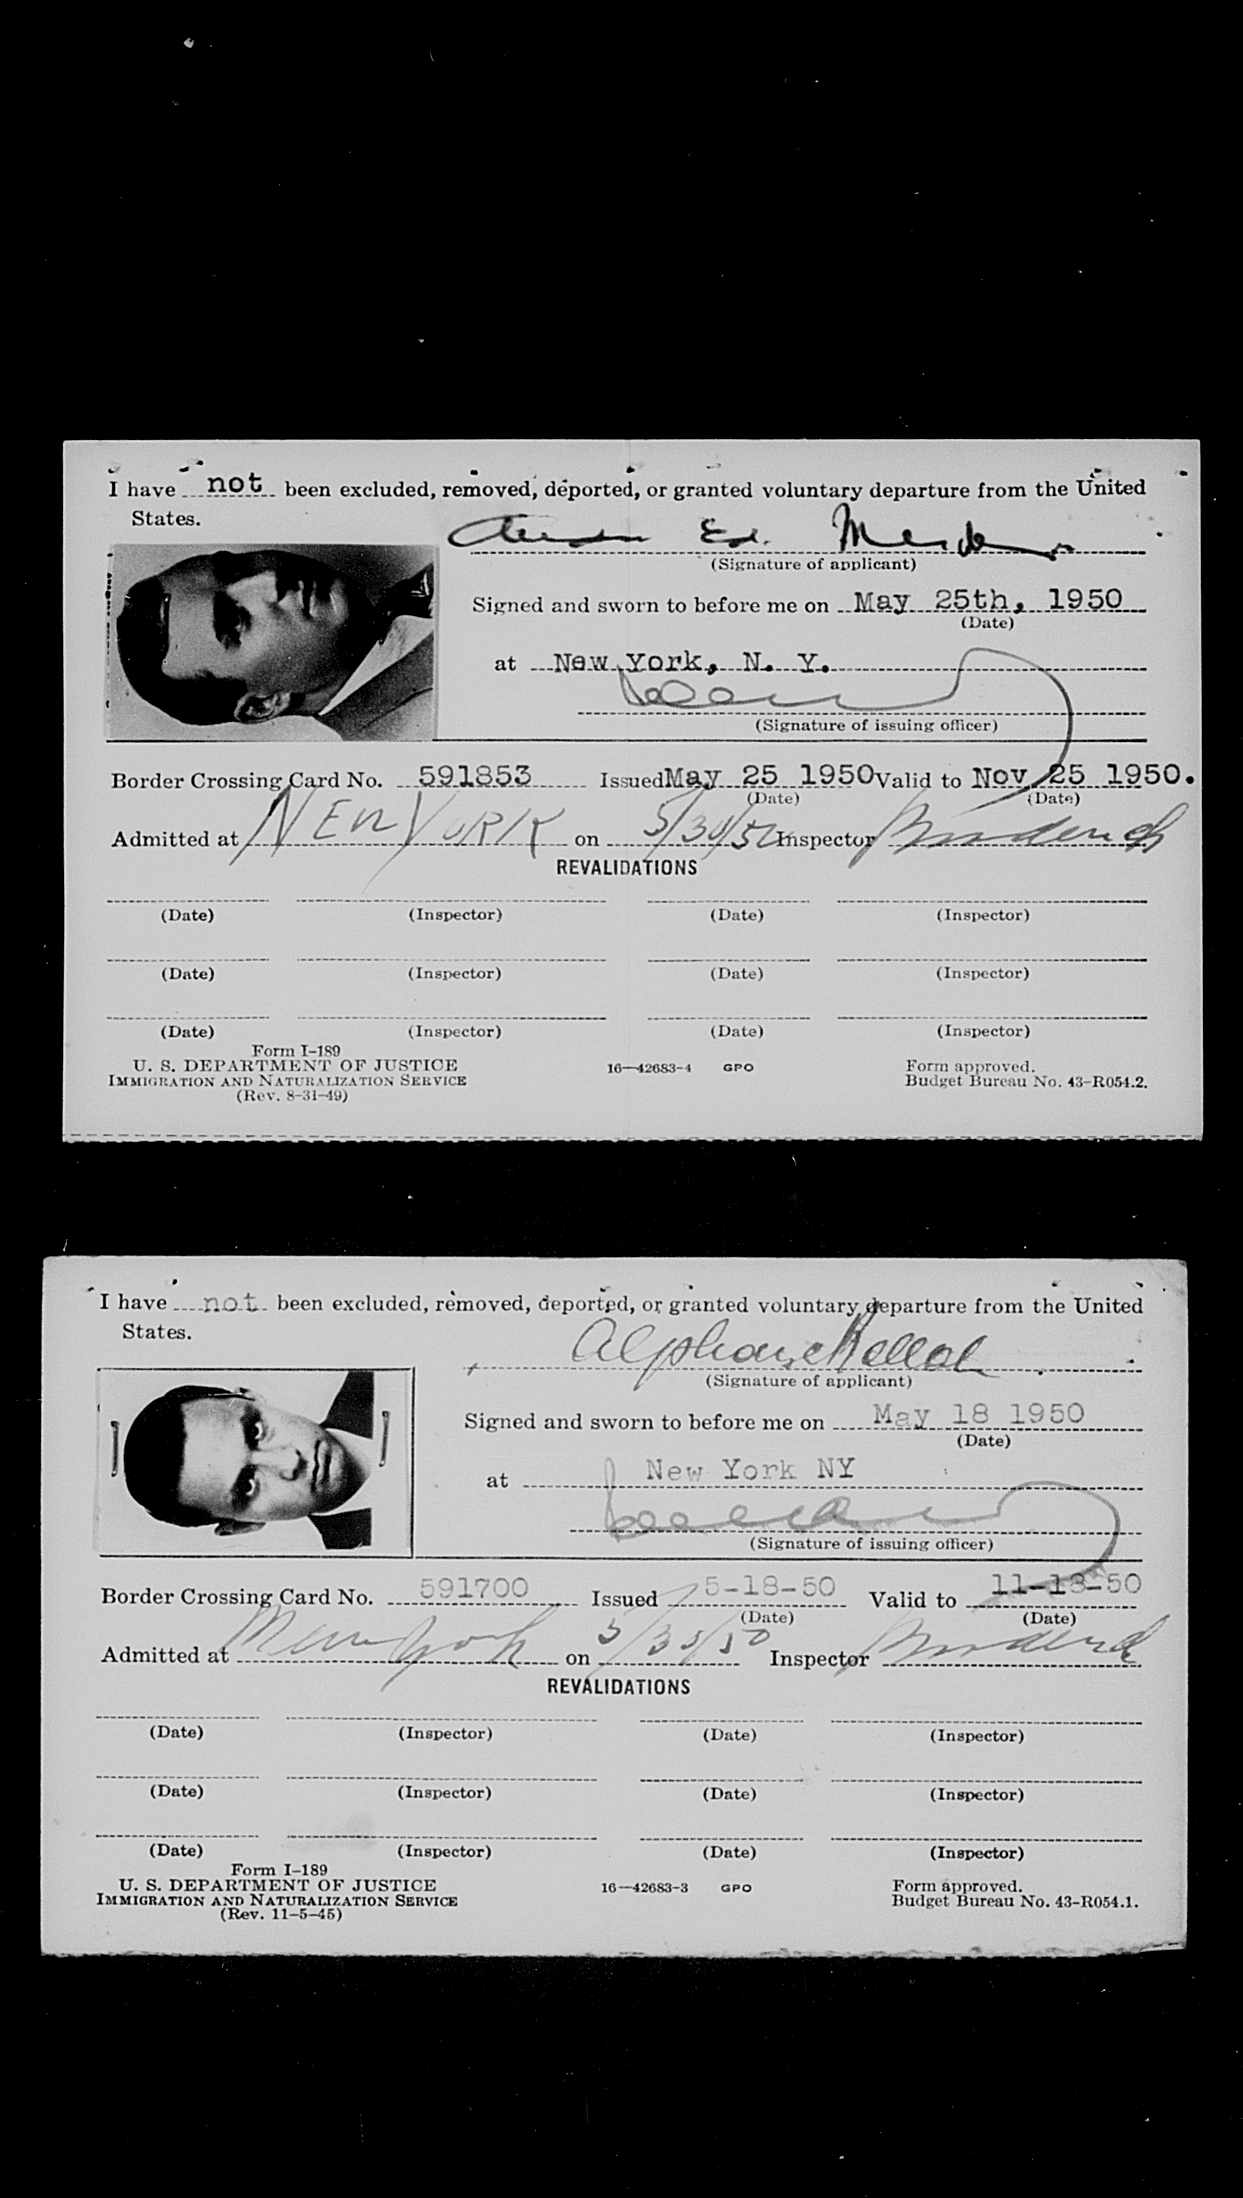 I have not been excluded, removed, deported, or granted voluntary departure from the United
States.
Ed.
(Signature of applicant)
Signed and sworn to before me on May 25th, 1950
(Date)
at New York, N. Y.
(Signature of issuing officer)
Border Crossing Card No. 591853 Issued May 25 1950 Valid to Nov 25 1950.
(Date) (Date)
Admitted at NEW YORK on 5/30/50 Inspector
REVALIDATIONS
(Date) (Inspector) (Date) (Inspector)
(Date) (Inspector) (Date) (Inspector)
(Date) (Inspector) (Date) (Inspector)
Form I-189
U. S. DEPARTMENT OF JUSTICE 16—42683-4 GPO Form approved.
IMMIGRATION AND NATURALIZATION SERVICE Budget Bureau No. 43-R054.2.
(Rev. 8-31-49)
I have not been excluded, removed, deported, or granted voluntary departure from the United
States.
Alphonse
(Signature of applicant)
Signed and sworn to before me on May 18 1950
(Date)
at New York NY
(Signature of issuing officer)
Border Crossing Card No. 591700 Issued 5-18-50 Valid to 11-18-50
(Date) (Date)
Admitted at New York on 5/30/50 Inspector
REVALIDATIONS
(Date) (Inspector) (Date) (Inspector)
(Date) (Inspector) (Date) (Inspector)
(Date) (Inspector) (Date) (Inspector)
Form I-189
U. S. DEPARTMENT OF JUSTICE 16—42683-3 GPO Form approved.
IMMIGRATION AND NATURALIZATION SERVICE Budget Bureau No. 43-R054.1.
(Rev. 11-5-45)